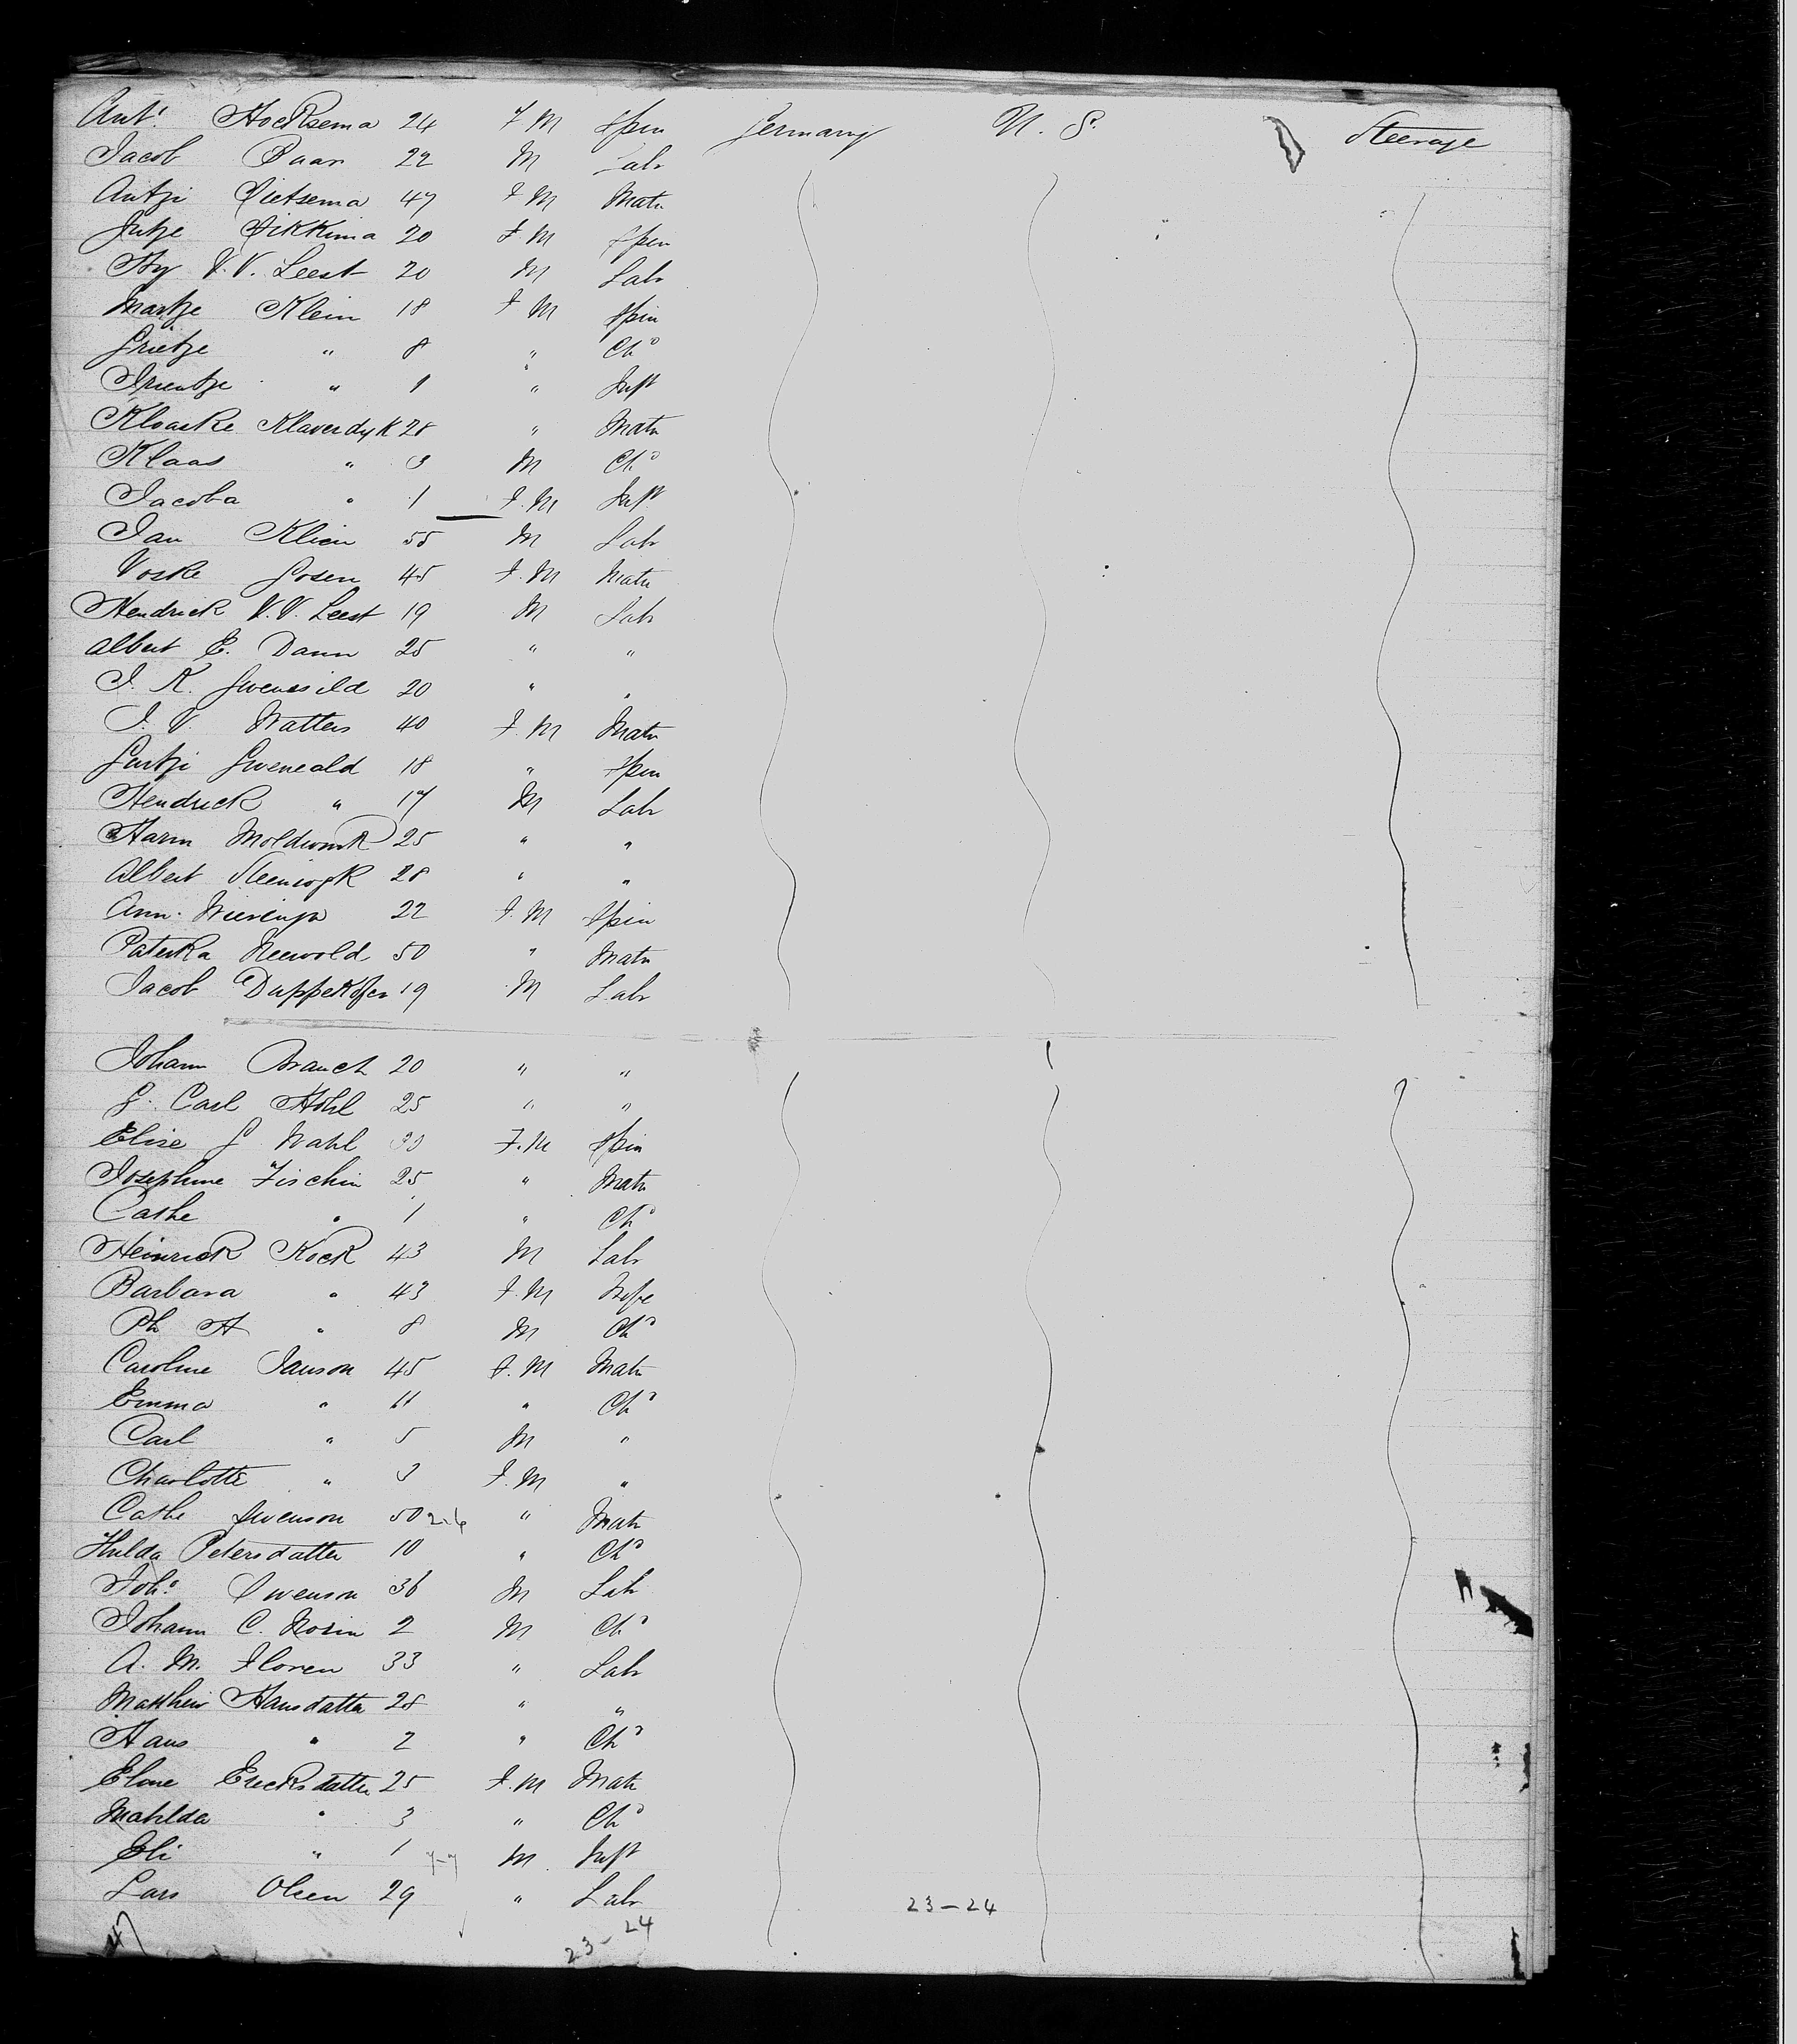 Ant. Hoeksema 24 F M Spin Germany U. S. Steerage
Jacob Paar 22 M Lab
Antji Dietsema 47 F M Matr
Jutje Dikkima 20 F. M Spin
Hy V. V. Leest 20 M Lab
Martje Klein 18 F M Spin
Grietje " 8 " Chd
Trientje " 1 " Inft
Kloaske Klaverdyk 28 " Matr
Klaas " 3 M Chd
Jacoba " 1 F. M Inft
Jan Klien 55 M Lab
Voske Gosen 45 F. M Matr
Hendrick V. V. Leest 19 M Lab
Albert E. Damn 25 " "
J. K. 20 " "
J. V. Watters 40 F. M Matr
Gertji Gweneald 18 " Spin
Hendrick " 17 M Lab
Harm 25 " "
Albert 28 " "
Ann. Wierenga 22 F. M Spin
Paterka Neewold 50 " Matr
Jacob 19 M Lab
Johann Branch 20 " "
G. Carl Hohl 25 " "
Elise G Wahl 30 F. M Spin
Josephine Fischin 25 " Matr
Cathe " 1 " Chd
Heinrick Kock 43 M Lab
Barbara " 43 F. M Wife
Ph H " 8 M Chd
Caroline Janson 45 F. M Matr
Emma " 11 " Chd
Carl " 5 M "
Charlotte " 3 F. M "
Cathe Swenson 50 2-6 " Matr
Hulda Petersdatter 10 " Chd
Joh. Swenson 36 M Lab
Johann C. Norin 2 M Chd
A. M. Floren 33 " Lab
Matthew Hansdatter 28 " "
Hans " 2 " Chd
Eline Ericksdatter 25 F. M Matr
Mahlda " 3 " Chd
Eli " 1 M Inft
Lars Olsen 29 " Lab 23-24
47 23-24